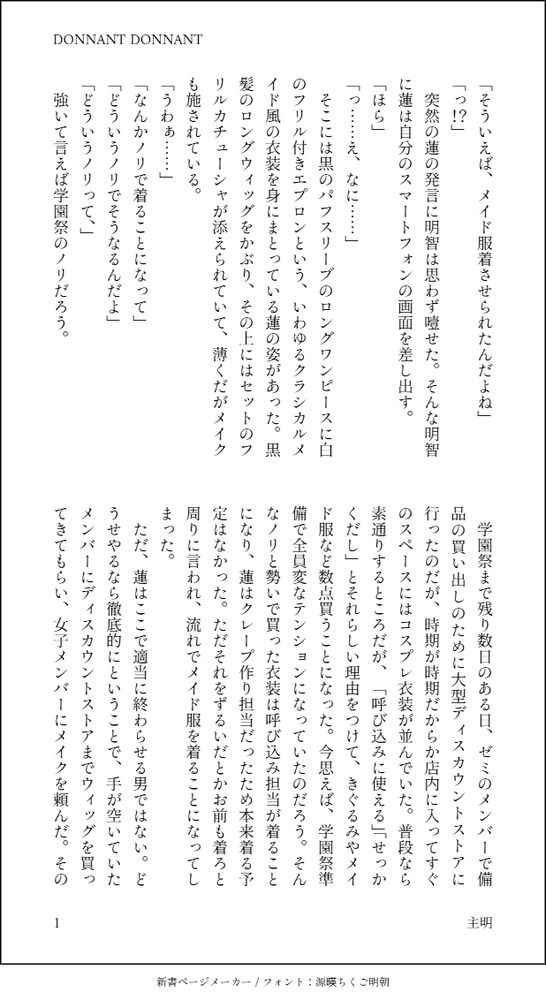 DONNANT DONNANT
「そういえば、メイド服着させられたんだよね」
「っ!?」
　突然の蓮の発言に明智は思わず噎せた。そんな明智
に蓮は自分のスマートフォンの画面を差し出す。
「ほら」
「っ……え、なに……」
　そこには黒のパフスリーブのロングワンピースに白
のフリル付きエプロンという、いわゆるクラシカルメ
イド風の衣装を身にまとっている蓮の姿があった。黒
髪のロングウィッグをかぶり、その上にはセットのフ
リルカチューシャが添えられていて、薄くだがメイク
も施されている。
「うわぁ……」
「なんかノリで着ることになって」
「どういうノリでそうなるんだよ」
「どういうノリって、」
　強いて言えば学園祭のノリだろう。
　学園祭まで残り数日のある日、ゼミのメンバーで備
品の買い出しのために大型ディスカウントストアに
行ったのだが、時期が時期だからか店内に入ってすぐ
のスペースにはコスプレ衣装が並んでいた。普段なら
素通りするところだが、「呼び込みに使える」「せっか
くだし」とそれらしい理由をつけて、きぐるみやメイ
ド服など数点買うことになった。今思えば、学園祭準
備で全員変なテンションになっていたのだろう。そん
なノリと勢いで買った衣装は呼び込み担当が着ること
になり、蓮はクレープ作り担当だったため本来着る予
定はなかった。ただそれをずるいだとかお前も着ろと
周りに言われ、流れでメイド服を着ることになってし
まった。
　ただ、蓮はここで適当に終わらせる男ではない。ど
うせやるなら徹底的にということで、手が空いていた
メンバーにディスカウントストアまでウィッグを買っ
てきてもらい、女子メンバーにメイクを頼んだ。その
1
主明
新書ページメーカー / フォント：源暎ちくご明朝